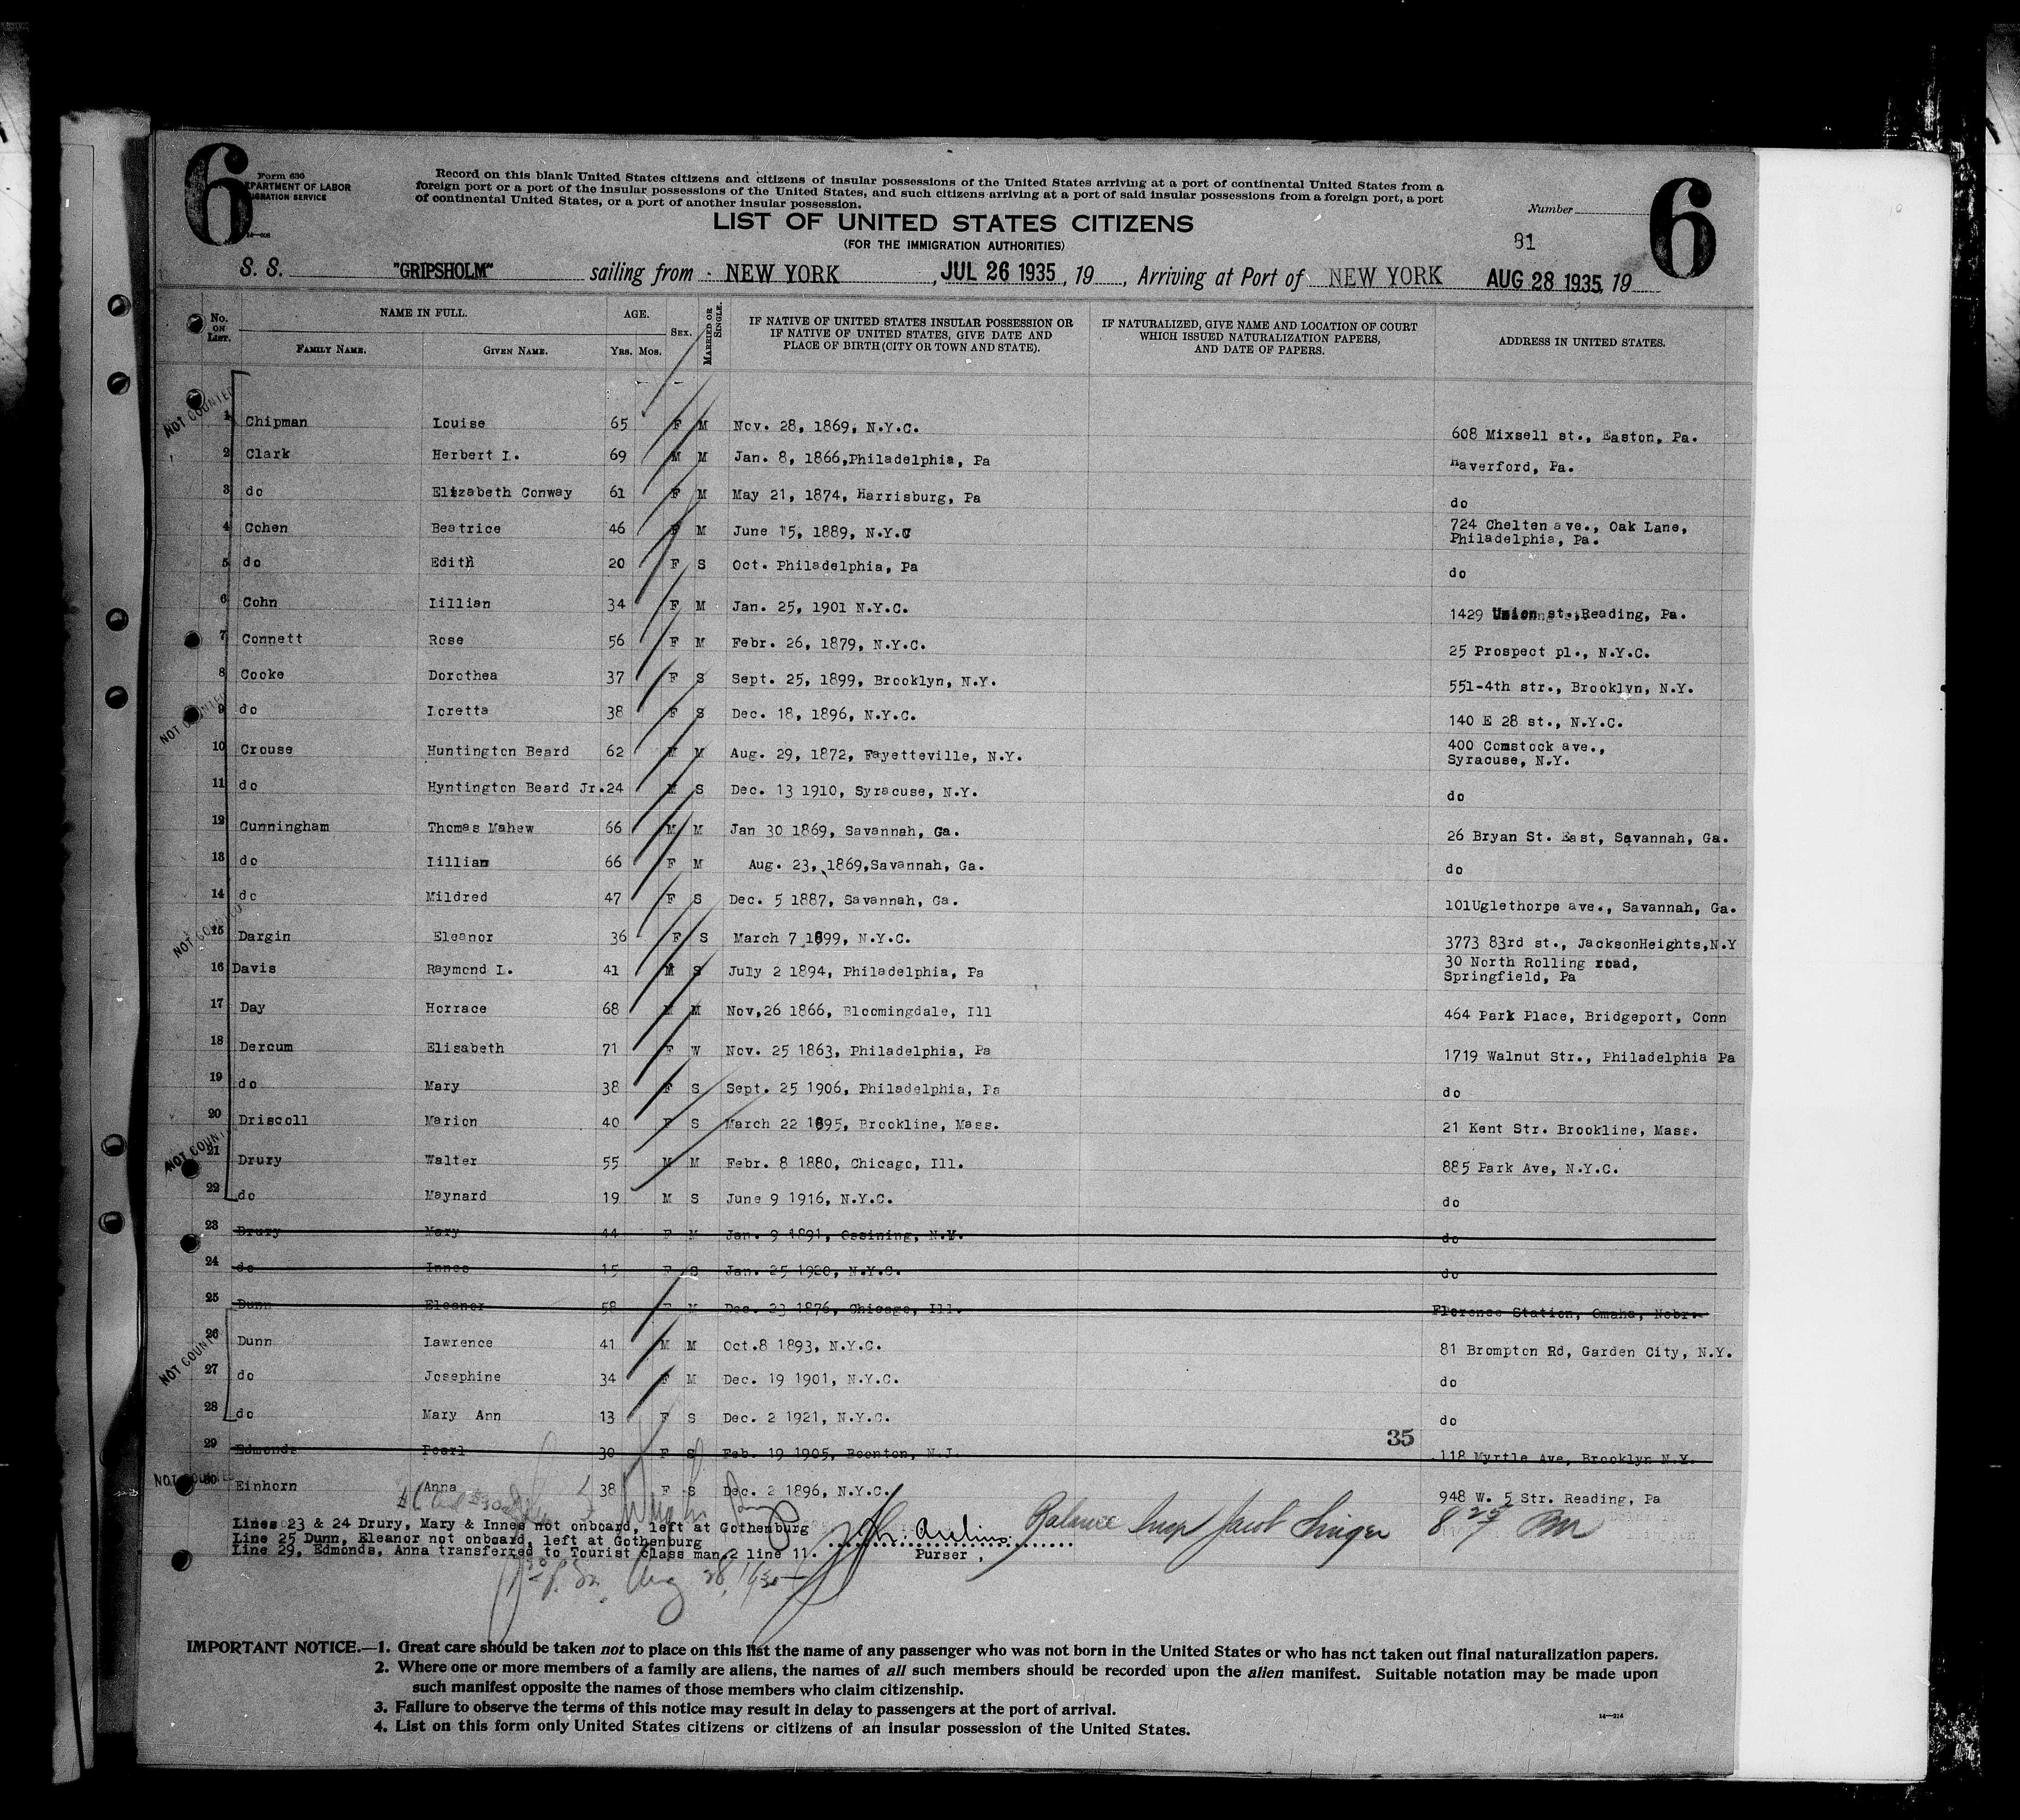 6
Form 630
DEPARTMENT OF LABOR
IMMIGRATION SERVICE
Record on this blank United States citizens and citizens of insular possessions of the United States arriving at a port of continental United States from a
foreign port or a port of the insular possessions of the United States, and such citizens arriving at a port of said insular possessions from a foreign port, a port
of continental United States, or a port of another insular possession.
Number
6
LIST OF UNITED STATES CITIZENS
(FOR THE IMMIGRATION AUTHORITIES)
81
S. S. "GRIPSHOLM" sailing from NEW YORK, JUL 26 1935, 19, Arriving at Port of NEW YORK AUG 28 1935, 19
No. on List. NAME IN FULL. AGE. Sex. Married or Single. IF NATIVE OF UNITED STATES INSULAR POSSESSION OR IF NATIVE OF UNITED STATES, GIVE DATE AND PLACE OF BIRTH (CITY OR TOWN AND STATE). IF NATURALIZED, GIVE NAME AND LOCATION OF COURT WHICH ISSUED NATURALIZATION PAPERS, AND DATE OF PAPERS. ADDRESS IN UNITED STATES.
Family Name. Given Name. Yrs. Mos.
NOT COUNTED
1 Chipman Louise 65 F M Nov. 28, 1869, N.Y.C. 608 Mixsell st., Easton, Pa.
2 Clark Herbert I. 69 M M Jan. 8, 1866,Philadelphia, Pa Haverford, Pa.
3 do Elizabeth Conway 61 F M May 21, 1874, Harrisburg, Pa do
4 Cohen Beatrice 46 F M June 15, 1889, N.Y.C 724 Chelten ave., Oak Lane,
Philadelphia, Pa.
5 do Edith 20 F S Oct. Philadelphia, Pa do
6 Cohn Lillian 34 F M Jan. 25, 1901 N.Y.C. 1429 Union st.,Reading, Pa.
7 Connett Rose 56 F M Febr. 26, 1879, N.Y.C. 25 Prospect pl., N.Y.C.
8 Cooke Dorothea 37 F S Sept. 25, 1899, Brooklyn, N.Y. 551-4th str., Brooklyn, N.Y.
NOT COUNTED
9 do Loretta 38 F S Dec. 18, 1896, N.Y.C. 140 E 28 st., N.Y.C.
10 Crouse Huntington Beard 62 M M Aug. 29, 1872, Fayetteville, N.Y. 400 Comstock ave.,
Syracuse, N.Y.
11 do Hyntington Beard Jr. 24 M S Dec. 13 1910, Syracuse, N.Y. do
12 Cunningham Thomas Mahew 66 M M Jan 30 1869, Savannah, Ga. 26 Bryan St. East, Savannah, Ga.
13 do Lillian 66 F M Aug. 23, 1869,Savannah, Ga. do
14 do Mildred 47 F S Dec. 5 1887, Savannah, Ga. 101Uglethorpe ave., Savannah, Ga.
NOT COUNTED
15 Dargin Eleanor 36 F S March 7 1899, N.Y.C. 3773 83rd st., JacksonHeights,N.Y
16 Davis Raymond L. 41 M S July 2 1894, Philadelphia, Pa 30 North Rolling road,
Springfield, Pa
17 Day Horrace 68 M M Nov,26 1866, Bloomingdale, Ill 464 Park Place, Bridgeport, Conn
18 Dercum Elisabeth 71 F W Nov. 25 1863, Philadelphia, Pa 1719 Walnut Str., Philadelphia Pa
19 do Mary 38 F S Sept. 25 1906, Philadelphia, Pa do
20 Driscoll Marion 40 F S March 22 1895, Brookline, Mass. 21 Kent Str. Brookline, Mass.
NOT COUNTED
21 Drury Walter 55 M M Febr. 8 1880, Chicago, Ill. 885 Park Ave, N.Y.C.
22 do Maynard 19 M S June 9 1916, N.Y.C. do
23 Drury Mary 44 F M Jan. 9 1891, Ossining, N.Y. do
24 do Innes 15 F S Jan. 25 1920, N.Y.C. do
25 Dunn Eleanor 58 F M Dec. 23 1876, Chicago, Ill. Florence Station, Omaha, Nebr.
26 Dunn Lawrence 41 M M Oct.8 1893, N.Y.C. 81 Brompton Rd, Garden City, N.Y.
NOT COUNTED
27 do Josephine 34 F M Dec. 19 1901, N.Y.C. do
28 do Mary Ann 13 F S Dec. 2 1921, N.Y.C. do
35
29 Edmonds Pearl 30 F S Feb. 19 1905, Boonton, N.J. 118 Myrtle Ave, Brooklyn N.Y.
NOT COUNTED
30 Einhorn Anna 38 F S Dec. 2 1896, N.Y.C. 948 W. 5 Str. Reading, Pa
Lines 23 & 24 Drury, Mary & Innes not onboard, left at Gothenburg
Line 25 Dunn, Eleanor not onboard, left at Gothenburg
Line 29, Edmonds, Anna transferred to Tourist class man.2 line 11.
Purser,
Balance Insp Jacob Singer 8 25 PM
Aug 28,
IMPORTANT NOTICE.—1. Great care should be taken not to place on this list the name of any passenger who was not born in the United States or who has not taken out final naturalization papers.
2. Where one or more members of a family are aliens, the names of all such members should be recorded upon the alien manifest. Suitable notation may be made upon
such manifest opposite the names of those members who claim citizenship.
3. Failure to observe the terms of this notice may result in delay to passengers at the port of arrival.
4. List on this form only United States citizens or citizens of an insular possession of the United States.
14—214